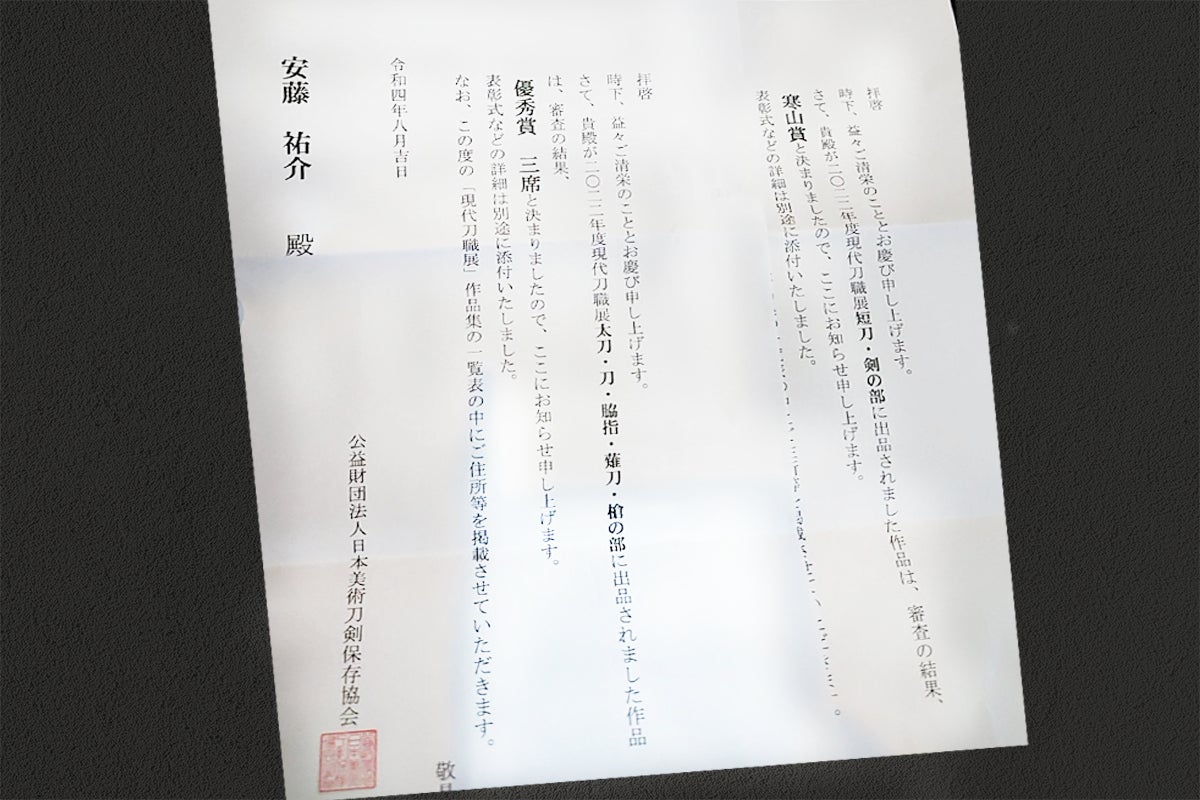 拝啓
時下、益々ご清栄のこととお慶び申し上げます。
さて、貴殿が二〇二二年度現代刀職展短刀・剣の部に出品されました作品は、審査の結果、
寒山賞と決まりましたので、ここにお知らせ申し上げます。
表彰式などの詳細は別途に添付いたしました。
拝啓
時下、益々ご清栄のこととお慶び申し上げます。
さて、貴殿が二〇二二年度現代刀職展太刀・刀・脇指・薙刀・槍の部に出品されました作品
は、審査の結果、
優秀賞 三席と決まりましたので、ここにお知らせ申し上げます。
表彰式などの詳細は別途に添付いたしました。
なお、この度の「現代刀職展」作品集の一覧表の中にご住所等を掲載させていただきます。
敬
令和四年八月吉日
公益財団法人日本美術刀剣保存協会
安藤 祐介 殿